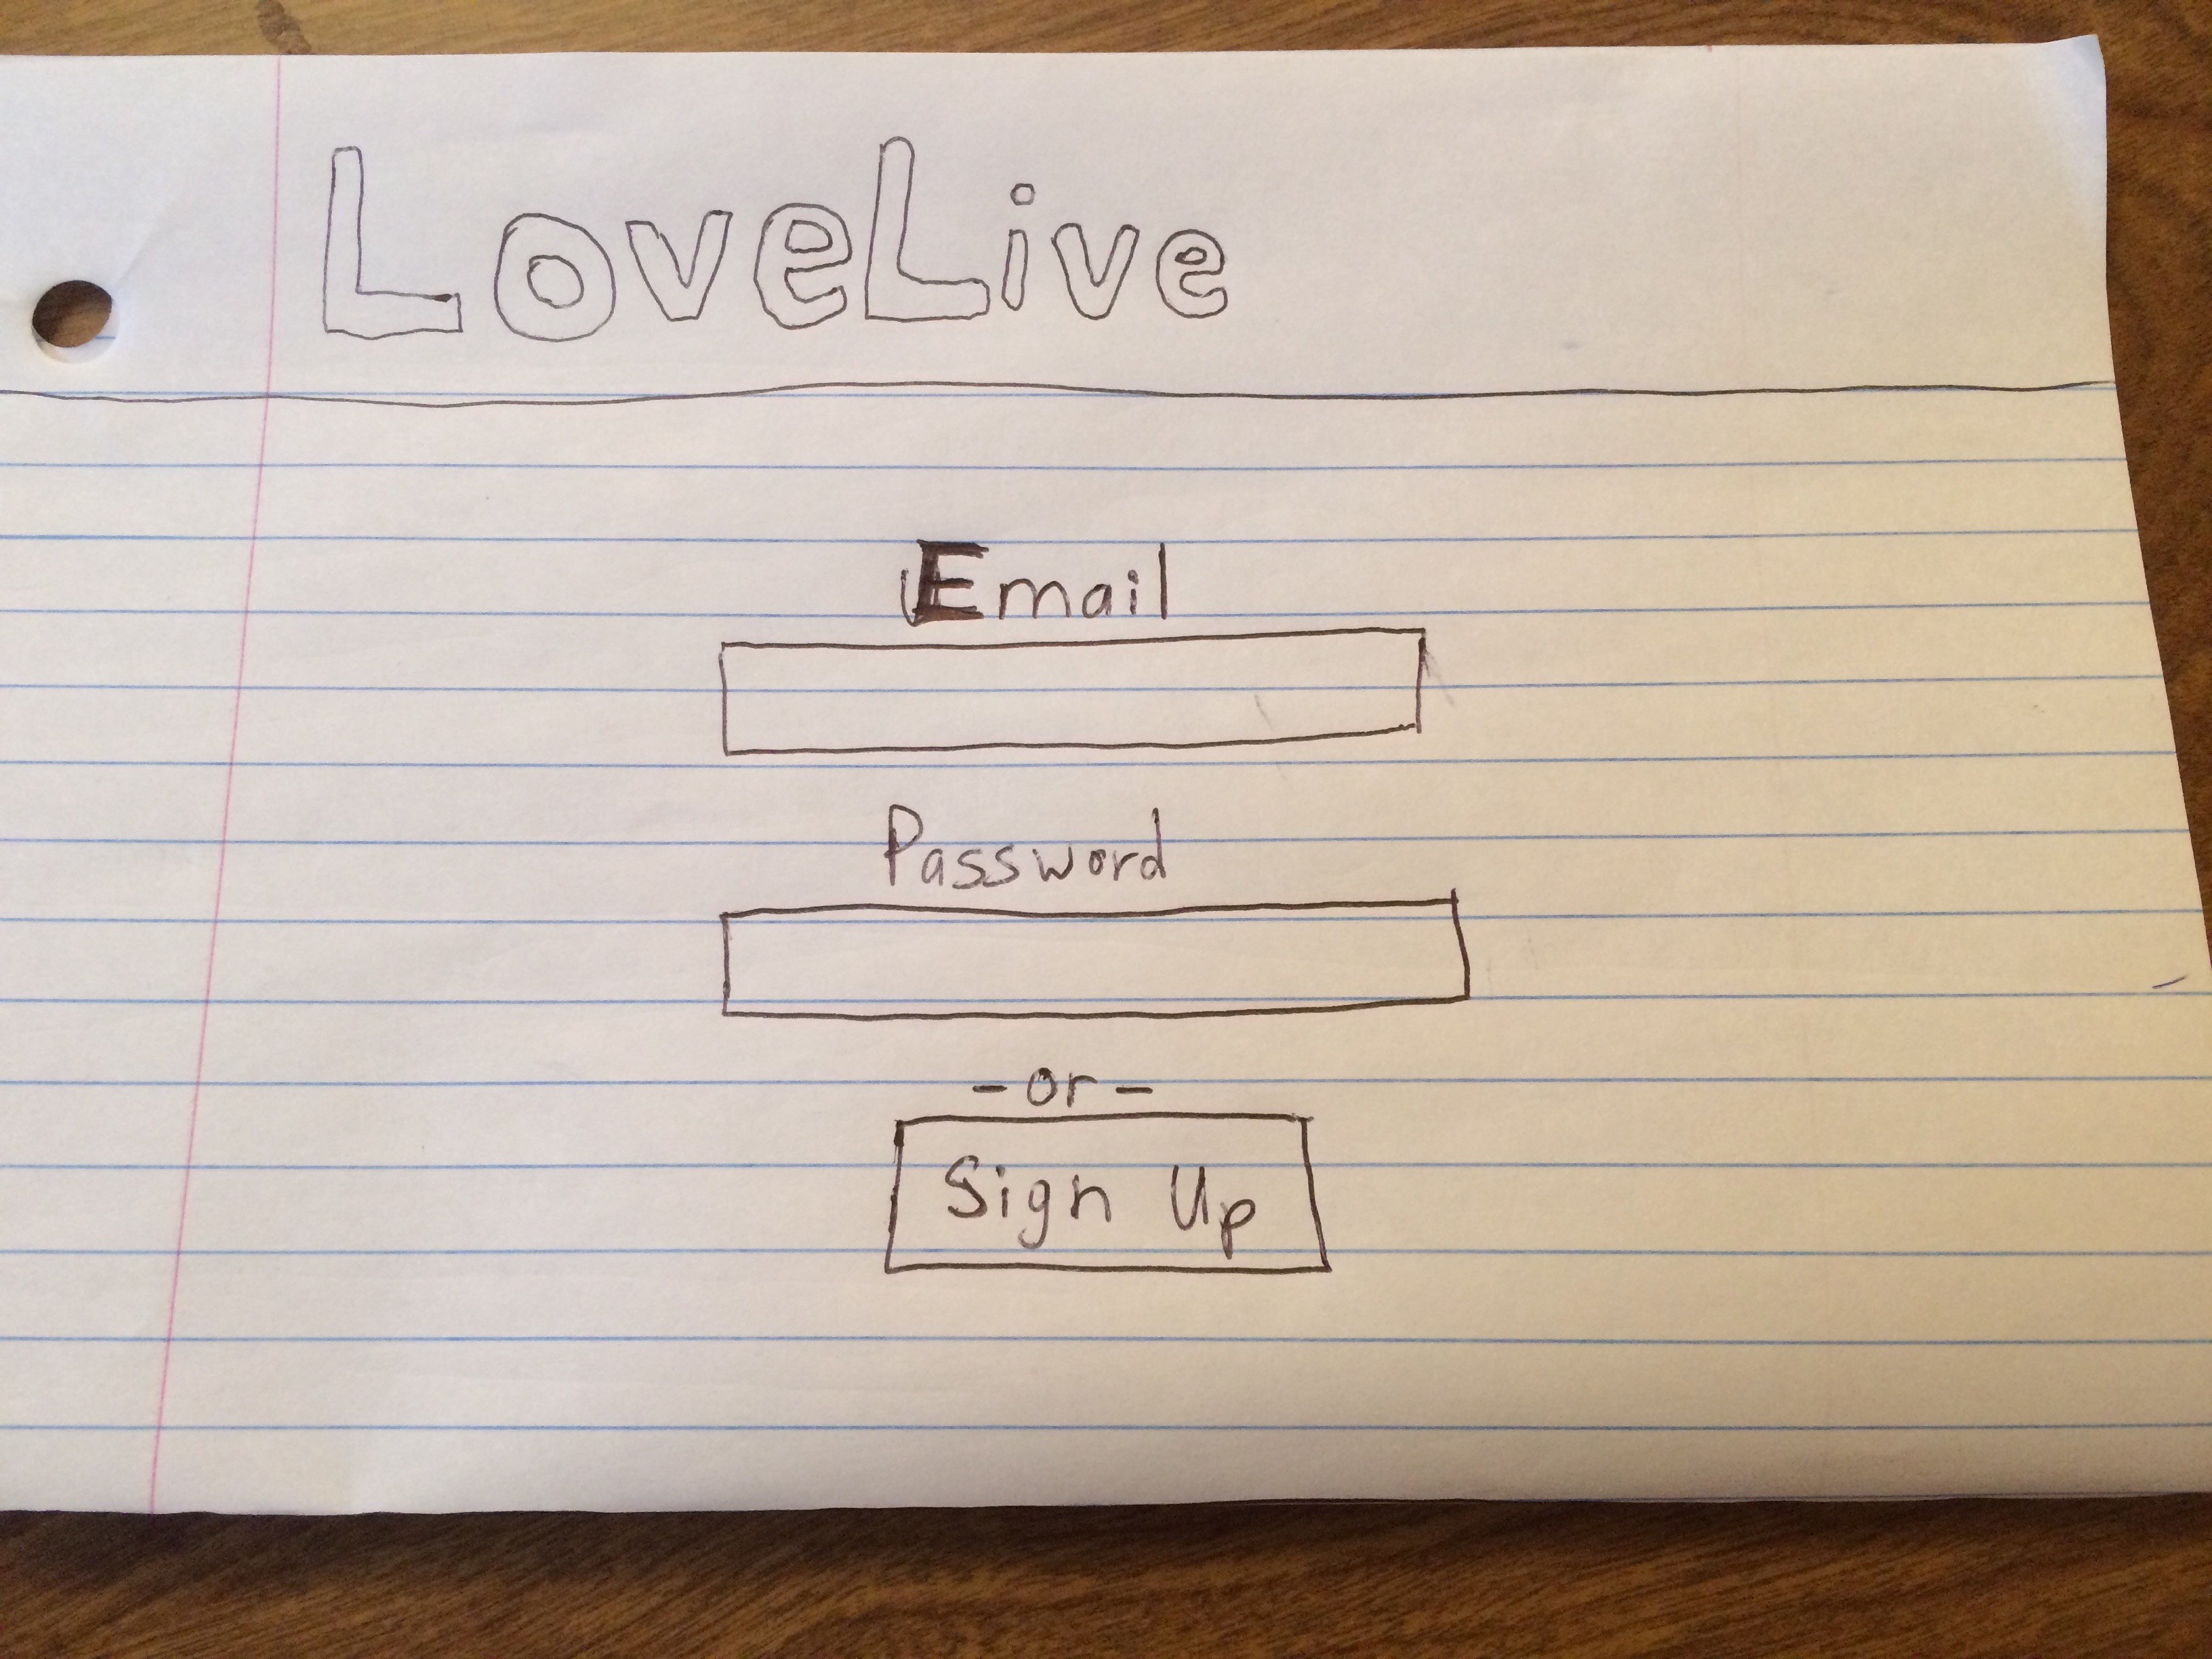 LoveLive
Email
Password
-or-
Sign Up